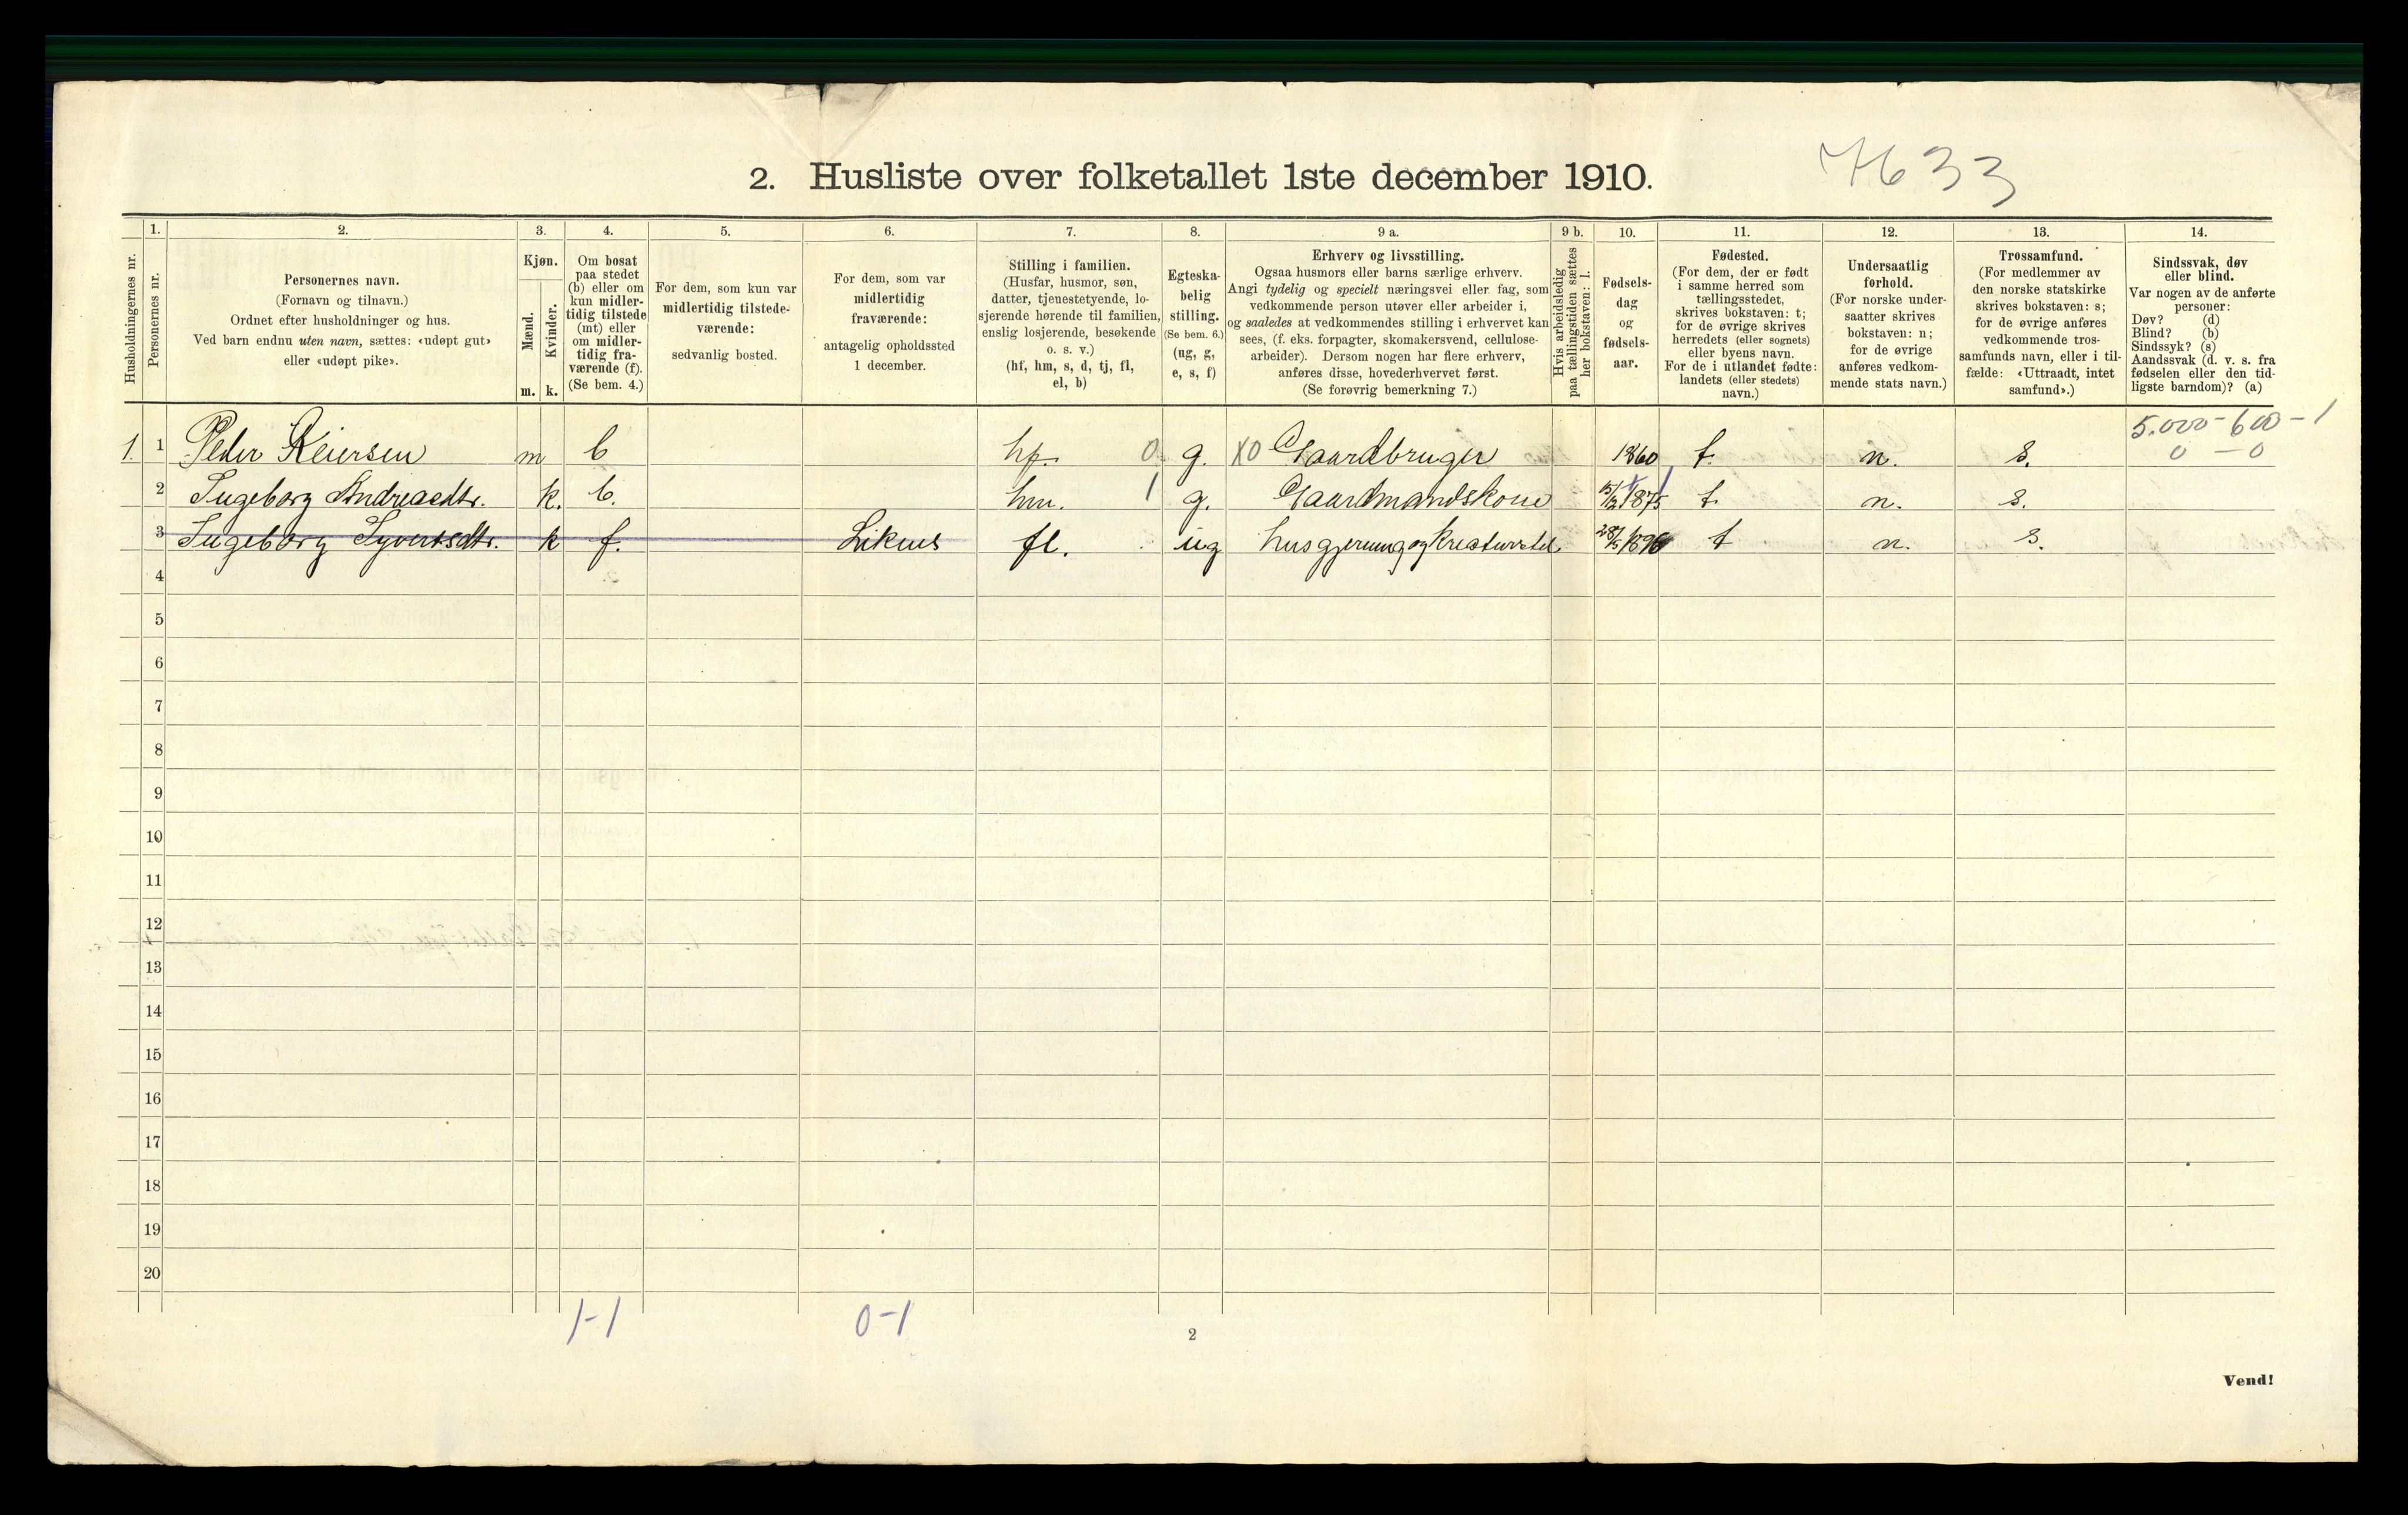 2. Husliste over folketallet 1ste december 1910.
7633
Husholdningernes nr.
1.
Personernes nr.
2.
Personernes navn.
(Fornavn og tilnavn.)
Ordnet efter husholdninger og hus.
Ved barn endnu uten navn, sættes: «udøpt gut»
eller «udøpt pike».
3.
Kjøn.
Mænd.
Kvinder.
m. k.
4.
Om bosat
paa stedet
(b) eller om
kun midler-
tidig tilstede
(mt) eller
om midler-
tidig fra-
værende (f).
(Se bem. 4.)
5.
For dem, som kun var
midlertidig tilstede-
værende:
sedvanlig bosted.
6.
For dem, som var
midlertidig
fraværende:
antagelig opholdssted
1 december.
7.
Stilling i familien.
(Husfar, husmor, søn,
datter, tjenestetyende, lo-
sjerende hørende til familien,
enslig losjerende, besøkende
o. s. v.)
(hf, hm, s, d, tj, fl,
el, b)
8.
Egteska-
belig
stilling.
(Se bem. 6.)
(ug, g,
e, s, f)
9 a.
Erhverv og livsstilling.
Ogsaa husmors eller barns særlige erhverv.
Angi tydelig og specielt næringsvei eller fag, som
vedkommende person utøver eller arbeider i,
og saaledes at vedkommendes stilling i erhvervet kan
sees, (f. eks. forpagter, skomakersvend, cellulose-
arbeider). Dersom nogen har flere erhverv,
anføres disse, hovederhvervet først.
(Se forøvrig bemerkning 7.)
9 b.
Hvis arbeidsledig
paa tællingstiden sættes
her bokstaven: l.
10.
Fødsels-
dag
og
fødsels-
aar.
11.
Fødested.
(For dem, der er født
i samme herred som
tællingsstedet,
skrives bokstaven: t;
for de øvrige skrives
herredets (eller sognets)
eller byens navn.
For de i utlandet fødte:
landets (eller stedets)
navn.)
12.
Undersaatlig
forhold.
(For norske under-
saatter skrives
bokstaven: n;
for de øvrige
anføres vedkom-
mende stats navn.)
13.
Trossamfund.
(For medlemmer av
den norske statskirke
skrives bokstaven: s;
for de øvrige anføres
vedkommende tros-
samfunds navn, eller i til-
fælde: «Uttraadt, intet
samfund».)
14.
Sindssvak, døv
eller blind.
Var nogen av de anførte
personer:
Døv? (d)
Blind? (b)
Sindssyk? (s)
Aandssvak (d. v. s. fra
fødselen eller den tid-
ligste barndom)? (a)
5.000-600-1
1. 1 Peder Reiersen m b hf. 0 g. X0 Gaardbruger 1860 t. n. s. 0-0
2 Ingeborg Andreasdtr. k. b. hm. 1 g. Gaardmandskone 15/12 1875 t. n. s.
3 Ingeborg Syvertsdtr. k f. Liknes fl. ug husgjerning og kreaturstel 28/5 1896 t n. s.
4
5
6
7
8
9
10
11
12
13
14
15
16
17
18
19
20
1-1 0-1
2
Vend!